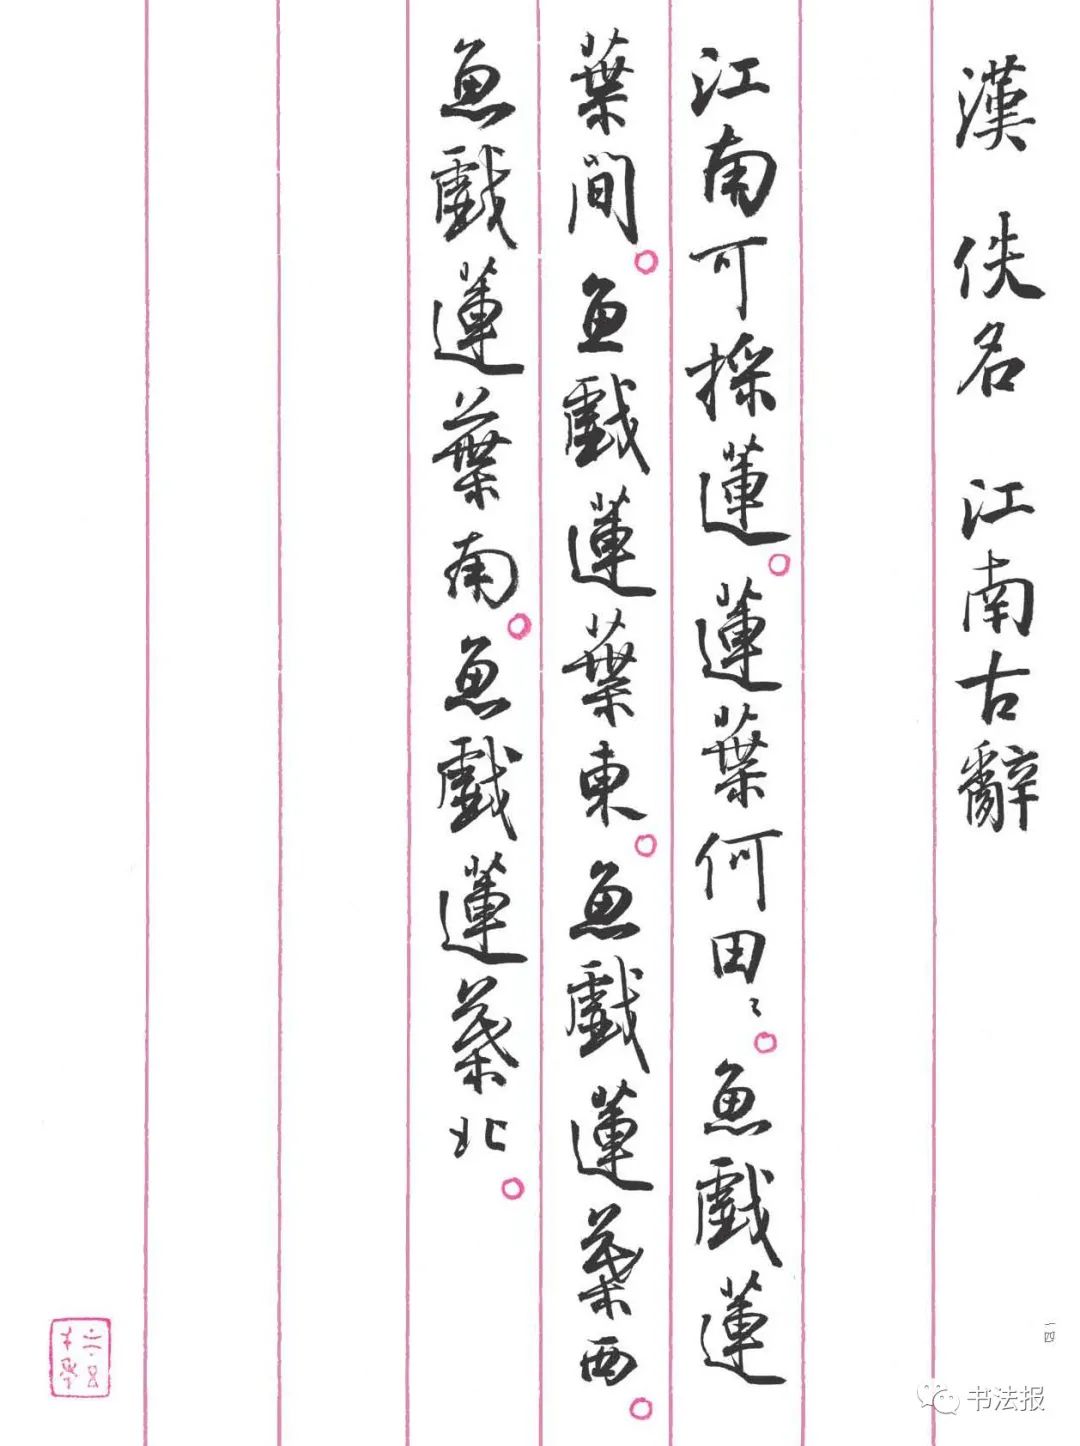 漢 佚名 江南古辭
江南可採蓮。蓮葉何田〻。魚戲蓮
葉間。魚戲蓮葉東。魚戲蓮葉西。
魚戲蓮葉南。魚戲蓮葉北。
一四
书法报